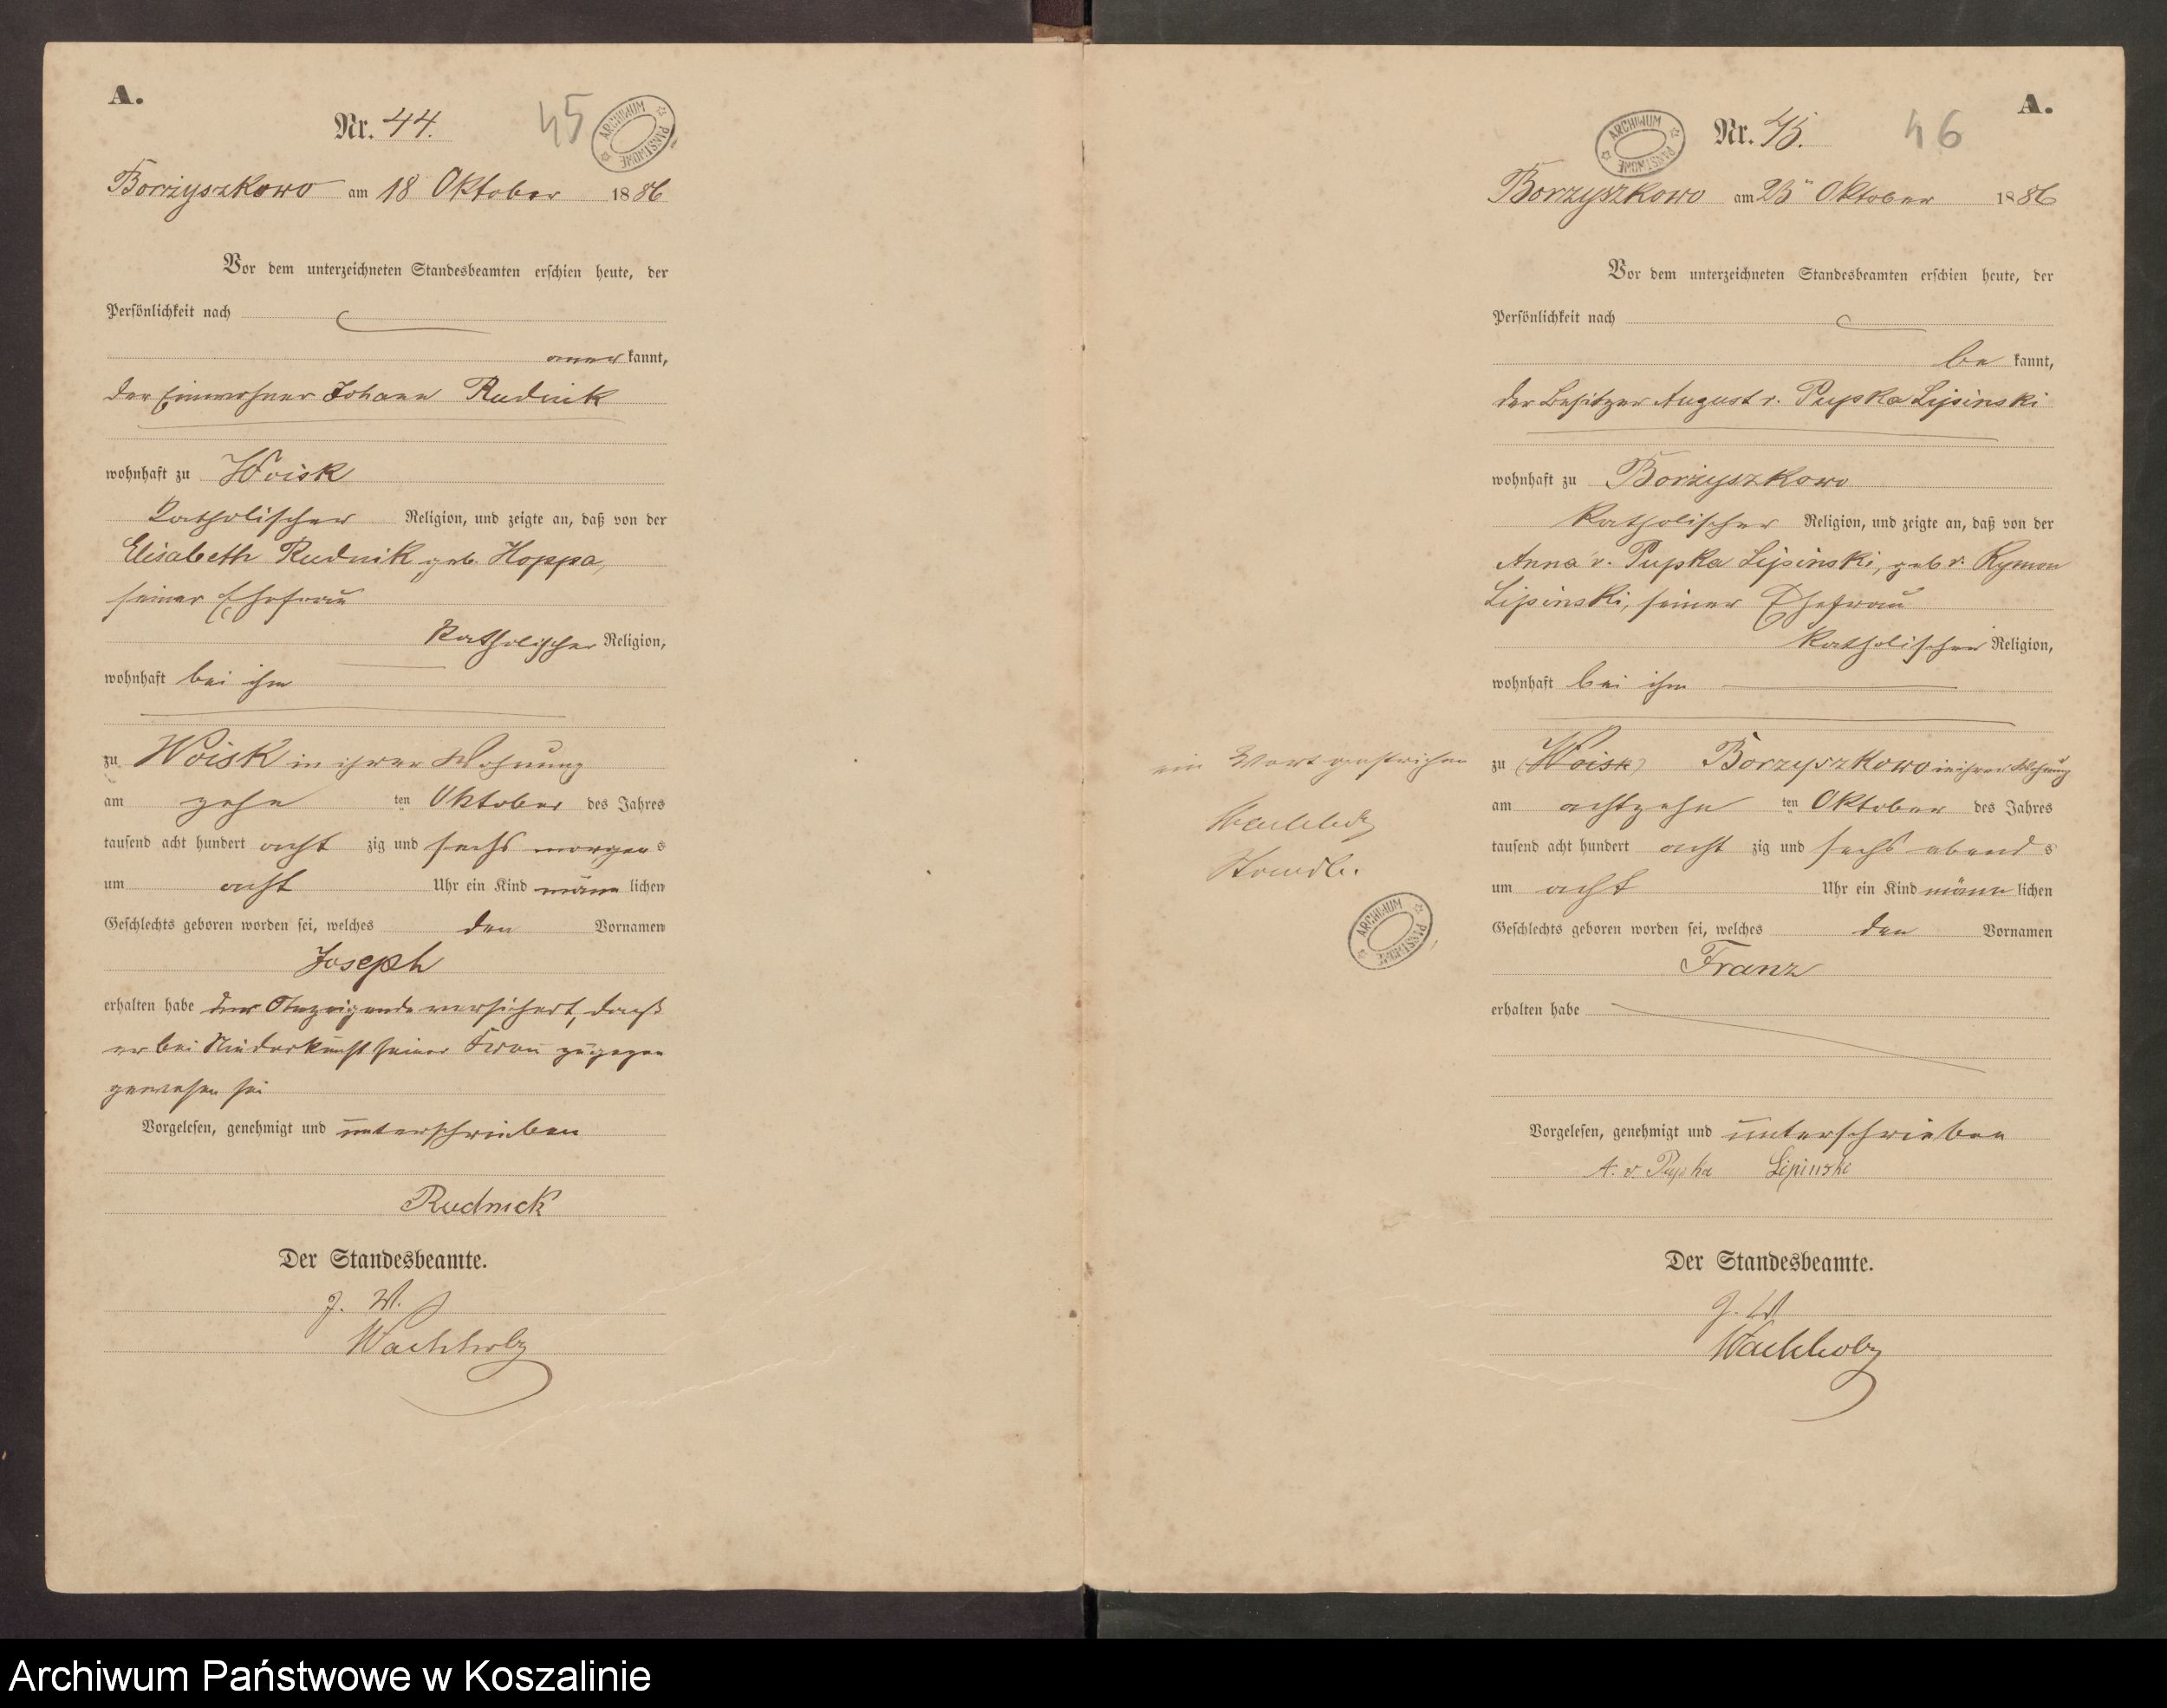 A.
Nr. 44.
45
ARCHIWUM PAŃSTWOWE
Borzyszkowo am 18 Oktober 1886
Vor dem unterzeichneten Standesbeamten erschien heute, der
Persönlichkeit nach
aner kannt,
der Einwohner Johann Rudnik
wohnhaft zu Woisk
katholischer Religion, und zeigte an, daß von der
Elisabeth Rudnik geb. Hoppa,
seiner Ehefrau
katholischer Religion,
wohnhaft bei ihm
zu Woisk in ihrer Wohnung
am zehn ten Oktober des Jahres
tausend acht hundert acht zig und sechs morgens
um acht Uhr ein Kind männ lichen
Geschlechts geboren worden sei, welches den Vornamen
Joseph
erhalten habe der Anzeigende versichert, daß
er bei Niederkunft seiner Frau zugegen
gewesen sei
Vorgelesen, genehmigt und unterschrieben
Rudnick
Der Standesbeamte.
J. V.
Wachholz
A.
ARCHIWUM PAŃSTWOWE
Nr. 45.
46
Borzyszkowo am 25ten Oktober 1886
Vor dem unterzeichneten Standesbeamten erschien heute, der
Persönlichkeit nach
be kannt,
der Besitzer August v. Pupka Lipinski
wohnhaft zu Borzyszkowo
katholischer Religion, und zeigte an, daß von der
Anna v. Pupka Lipinski, geb v. Rymon
Lipinski, seiner Ehefrau
katholischer Religion,
wohnhaft bei ihm
ein Wort gestrichen
Wachholz
Standb.
ARCHIWUM PAŃSTWOWE
zu (Woisk) Borzyszkowo in ihrer Wohnung
am achtzehn ten Oktober des Jahres
tausend acht hundert acht zig und sechs abend s
um acht Uhr ein Kind männ lichen
Geschlechts geboren worden sei, welches den Vornamen
Franz
erhalten habe
Vorgelesen, genehmigt und unterschrieben
A. v. Pupka Lipinski
Der Standesbeamte.
J. V.
Wachholz
Archiwum Państwowe w Koszalinie